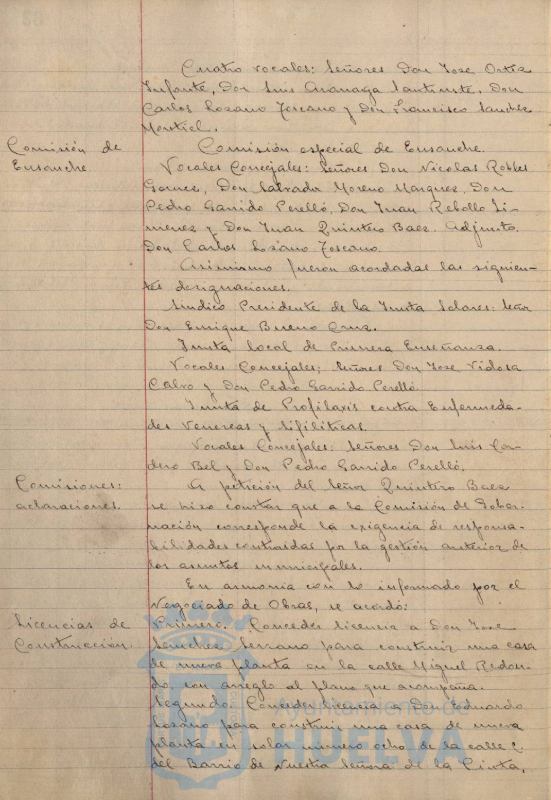 Cuatro vocales: Señores Don Jose Ortiz
Infante, Don Luis Aranaga Santuste, Don
Carlos Lozano Toscano y Don Francisco Sanchez
Montiel.
Comisión de
Ensanche
Comisión especial de Ensanche.
Vocales Concejales: Señores Don Nicolas Robles
Gomez, Don Salvador Moreno Marquez, Don
Pedro Garrido Perelló, Don Juan Rebollo Ji-
menez y Don Juan Quintero Baez. Adjunto.
Don Carlos Lozano Toscano.
Asimismo fueron acordadas las siguien-
tes designaciones.
Sindico Presidente de la Junta Solares: Señor
Don Enrique Bueno Cruz.
Junta local de Primera Enseñanza.
Vocales Concejales; Señores Don Jose Vidosa
Calvo y Don Pedro Garrido Perelló.
Junta de Profilaxis contra Enfermeda-
des Venereas y Sifiliticas.
Vocales Concejales: Señores Don Luis Cor-
dero Bel y Don Pedro Garrido Perelló.
Comisiones:
aclaraciones.
A petición del Señor Quintero Baez
se hizo constar que a la Comisión de Gober-
nación corresponde la exigencia de responsa-
bilidades contraidas por la gestión anterior de
los asuntos municipales.
En armonia con lo informado por el
Negociado de Obras, se acordó:
Licencias de
Construcción.
Primero. Conceder licencia a Don Jose
Sanchez Serrano para construir una casa
de nueva planta en la calle Miguel Redon-
do, con arreglo al plano que acompaña.
Segundo. Conceder licencia a Don Eduardo
Lozano para construir una casa de nueva
planta en solar numero ocho de la calle C.
del Barrio de Nuestra Señora de la Cinta,
Ayuntamiento de
HUELVA